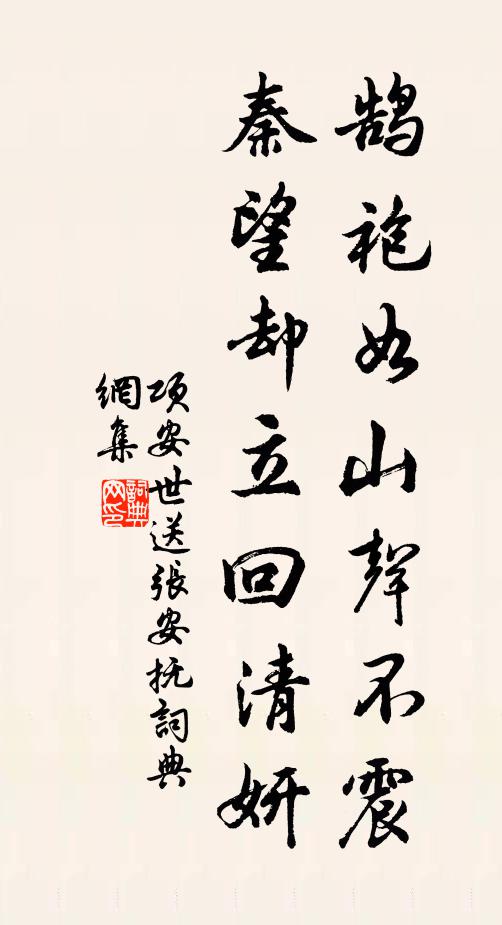 鹄袍如山聲不震
秦望却立回清妍
項安世送張安抚詞典
網集
詞典網印